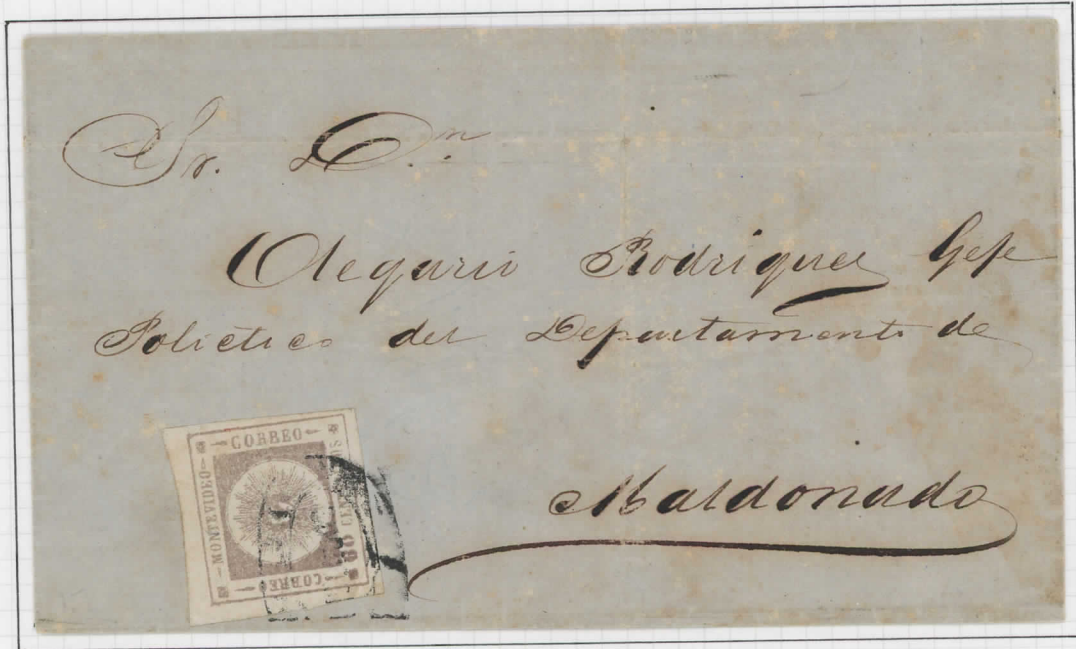 Sr. Dn.
Olegario Rodriguez Gefe
Polictico del Departamento de
Maldonado
CORREO
MONTEVIDEO
80 CEN
CORREO